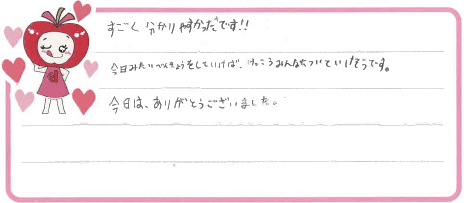 すごく分かりやすかったです!!
今日みたいべんきょうをしていけば、けっこうみんなについていけそうです。
今日は、ありがとうございました。